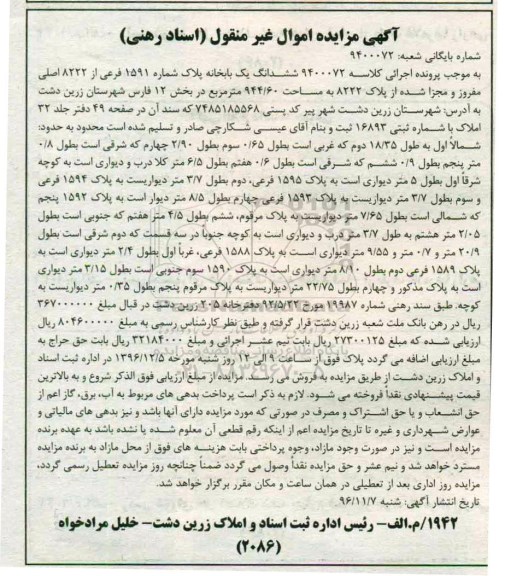 آگهی مزایده اموال غیر منقول (اسناد رهنی)
شماره بایگانی شعبه: ۹۴۰۰۰۷۲
به موجب پرونده اجرائی کلاسه ۹۴۰۰۰۷۲ ششدانگ یک بابخانه پلاک شماره ۱۵۹۱ فرعی از ۸۲۲۲ اصلی
مفروز و مجزا شده از پلاک ۸۲۲۲ به مساحت ۹۴۴/۶۰ مترمربع در بخش ۱۲ فارس شهرستان زرین دشت
به آدرس: شهرستان زرین دشت شهر پیر کد پستی ۷۴۸۵۱۸۵۵۶۸ که سند آن در صفحه ۴۹ دفتر جلد ۳۲
املاک با شماره ثبتی ۱۶۸۹۳ ثبت و بنام آقای عیسی شکارچی صادر و تسلیم شده است محدود به حدود:
شمالاً اول به طول ۱۸/۳۵ دوم که غربی است بطول ۰/۶۵ سوم بطول ۲/۹۰ چهارم که شرقی است بطول ۰/۸
متر پنجم بطول ۰/۹ ششم که شرقی است بطول ۰/۶ هفتم بطول ۶/۵ متر کلا درب و دیواری است به کوچه
شرقاً اول بطول ۵ متر دیواری است به پلاک ۱۵۹۵ فرعی، دوم بطول ۳/۷ متر دیواریست به پلاک ۱۵۹۴ فرعی
و سوم بطول ۳/۷ متر دیواریست به پلاک ۱۵۹۳ فرعی چهارم بطول ۸/۵ متر دیوار است به پلاک ۱۵۹۲ پنجم
که شمالی است بطول ۷/۶۵ متر دیواریست به پلاک مرقوم، ششم بطول ۴/۵ متر هفتم که جنوبی است بطول
۲/۰۵ متر هشتم به طول ۳/۷ متر درب و دیواری است به کوچه جنوباً در سه قسمت که دوم شرقی است بطول
۲۰/۹ متر و ۰/۷ متر و ۹/۵۵ متر دیواری است به پلاک ۱۵۸۸ فرعی، غرباً اول بطول ۲/۴ متر دیواری است به
پلاک ۱۵۸۹ فرعی دوم بطول ۸/۹۰ متر دیواری است به پلاک ۱۵۹۰ سوم جنوبی است بطول ۳/۱۵ متر دیواری
است به پلاک مذکور و چهارم بطول ۲۲/۷۵ متر دیواریست به پلاک مرقوم پنجم بطول ۰/۳۵ متر دیواریست به
کوچه. طبق سند رهنی شماره ۱۹۹۸۷ مورخ ۹۲/۵/۲۳ دفترخانه ۲۰۵ زرین دشت در قبال مبلغ ۳۶۷۰۰۰۰۰۰
ریال در رهن بانک ملت شعبه زرین دشت قرار گرفته و طبق نظر کارشناس رسمی به مبلغ ۸۰۴۶۰۰۰۰۰ ریال
ارزیابی شده که مبلغ ۲۷۳۰۰۱۲۵ ریال بابت نیم عشر اجرائی و مبلغ ۳۲۱۸۴۰۰۰ ریال بابت حق حراج به
مبلغ ارزیابی اضافه می گردد پلاک فوق از ساعت ۹ الی ۱۲ روز شنبه مورخه ۱۳۹۶/۱۲/۵ در اداره ثبت اسناد
و املاک زرین دشت از طریق مزایده به فروش می رسد. مزایده از مبلغ ارزیابی فوق الذکر شروع و به بالاترین
قیمت پیشنهادی نقداً فروخته می شود. لازم به ذکر است پرداخت بدهی های مربوط به آب، برق، گاز اعم از
حق انشعاب و یا حق اشتراک و مصرف در صورتی که مورد مزایده دارای آنها باشد و نیز بدهی های مالیاتی و
عوارض شهرداری و غیره تا تاریخ مزایده اعم از اینکه رقم قطعی آن معلوم شده یا نشده باشد به عهده برنده
مزایده است و نیز در صورت وجود مازاد، وجوه پرداختی بابت هزینه های فوق از محل مازاد به برنده مزایده
مسترد خواهد شد و نیم عشر و حق مزایده نقداً وصول می گردد ضمناً چنانچه روز مزایده تعطیل رسمی گردد،
مزایده روز اداری بعد از تعطیلی در همان ساعت و مکان مقرر برگزار خواهد شد.
تاریخ انتشار آگهی: شنبه ۹۶/۱۱/۷
۱۹۴۲/م.الف- رئیس اداره ثبت اسناد و املاک زرین دشت- خلیل مرادخواه
(۲۰۸۶)